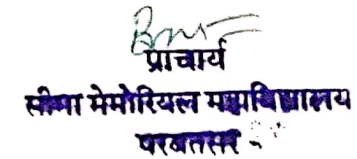 प्राचार्य
सीमा मेमोरियल महाविद्यालय
परबतसर